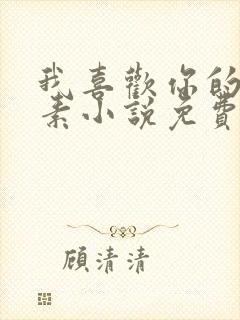 我喜歡你的
素小說免費
顧清清